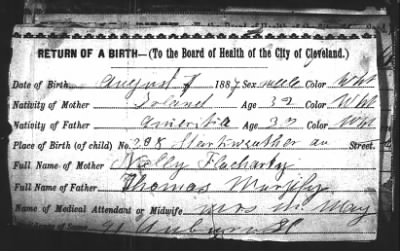 RETURN OF A BIRTH—(To the Board of Health of the City of Cleveland.)
Date of Birth, August 7 1887 Sex male Color Wht
Nativity of Mother Ireland Age 32 Color Wht
Nativity of Father America Age 32 Color Wht
Place of Birth (of child) No. 208 Starkweather av Street.
Full Name of Mother Flacharty
Full Name of Father Thomas
Name of Medical Attendant or Midwife Mrs M May
Auburn St